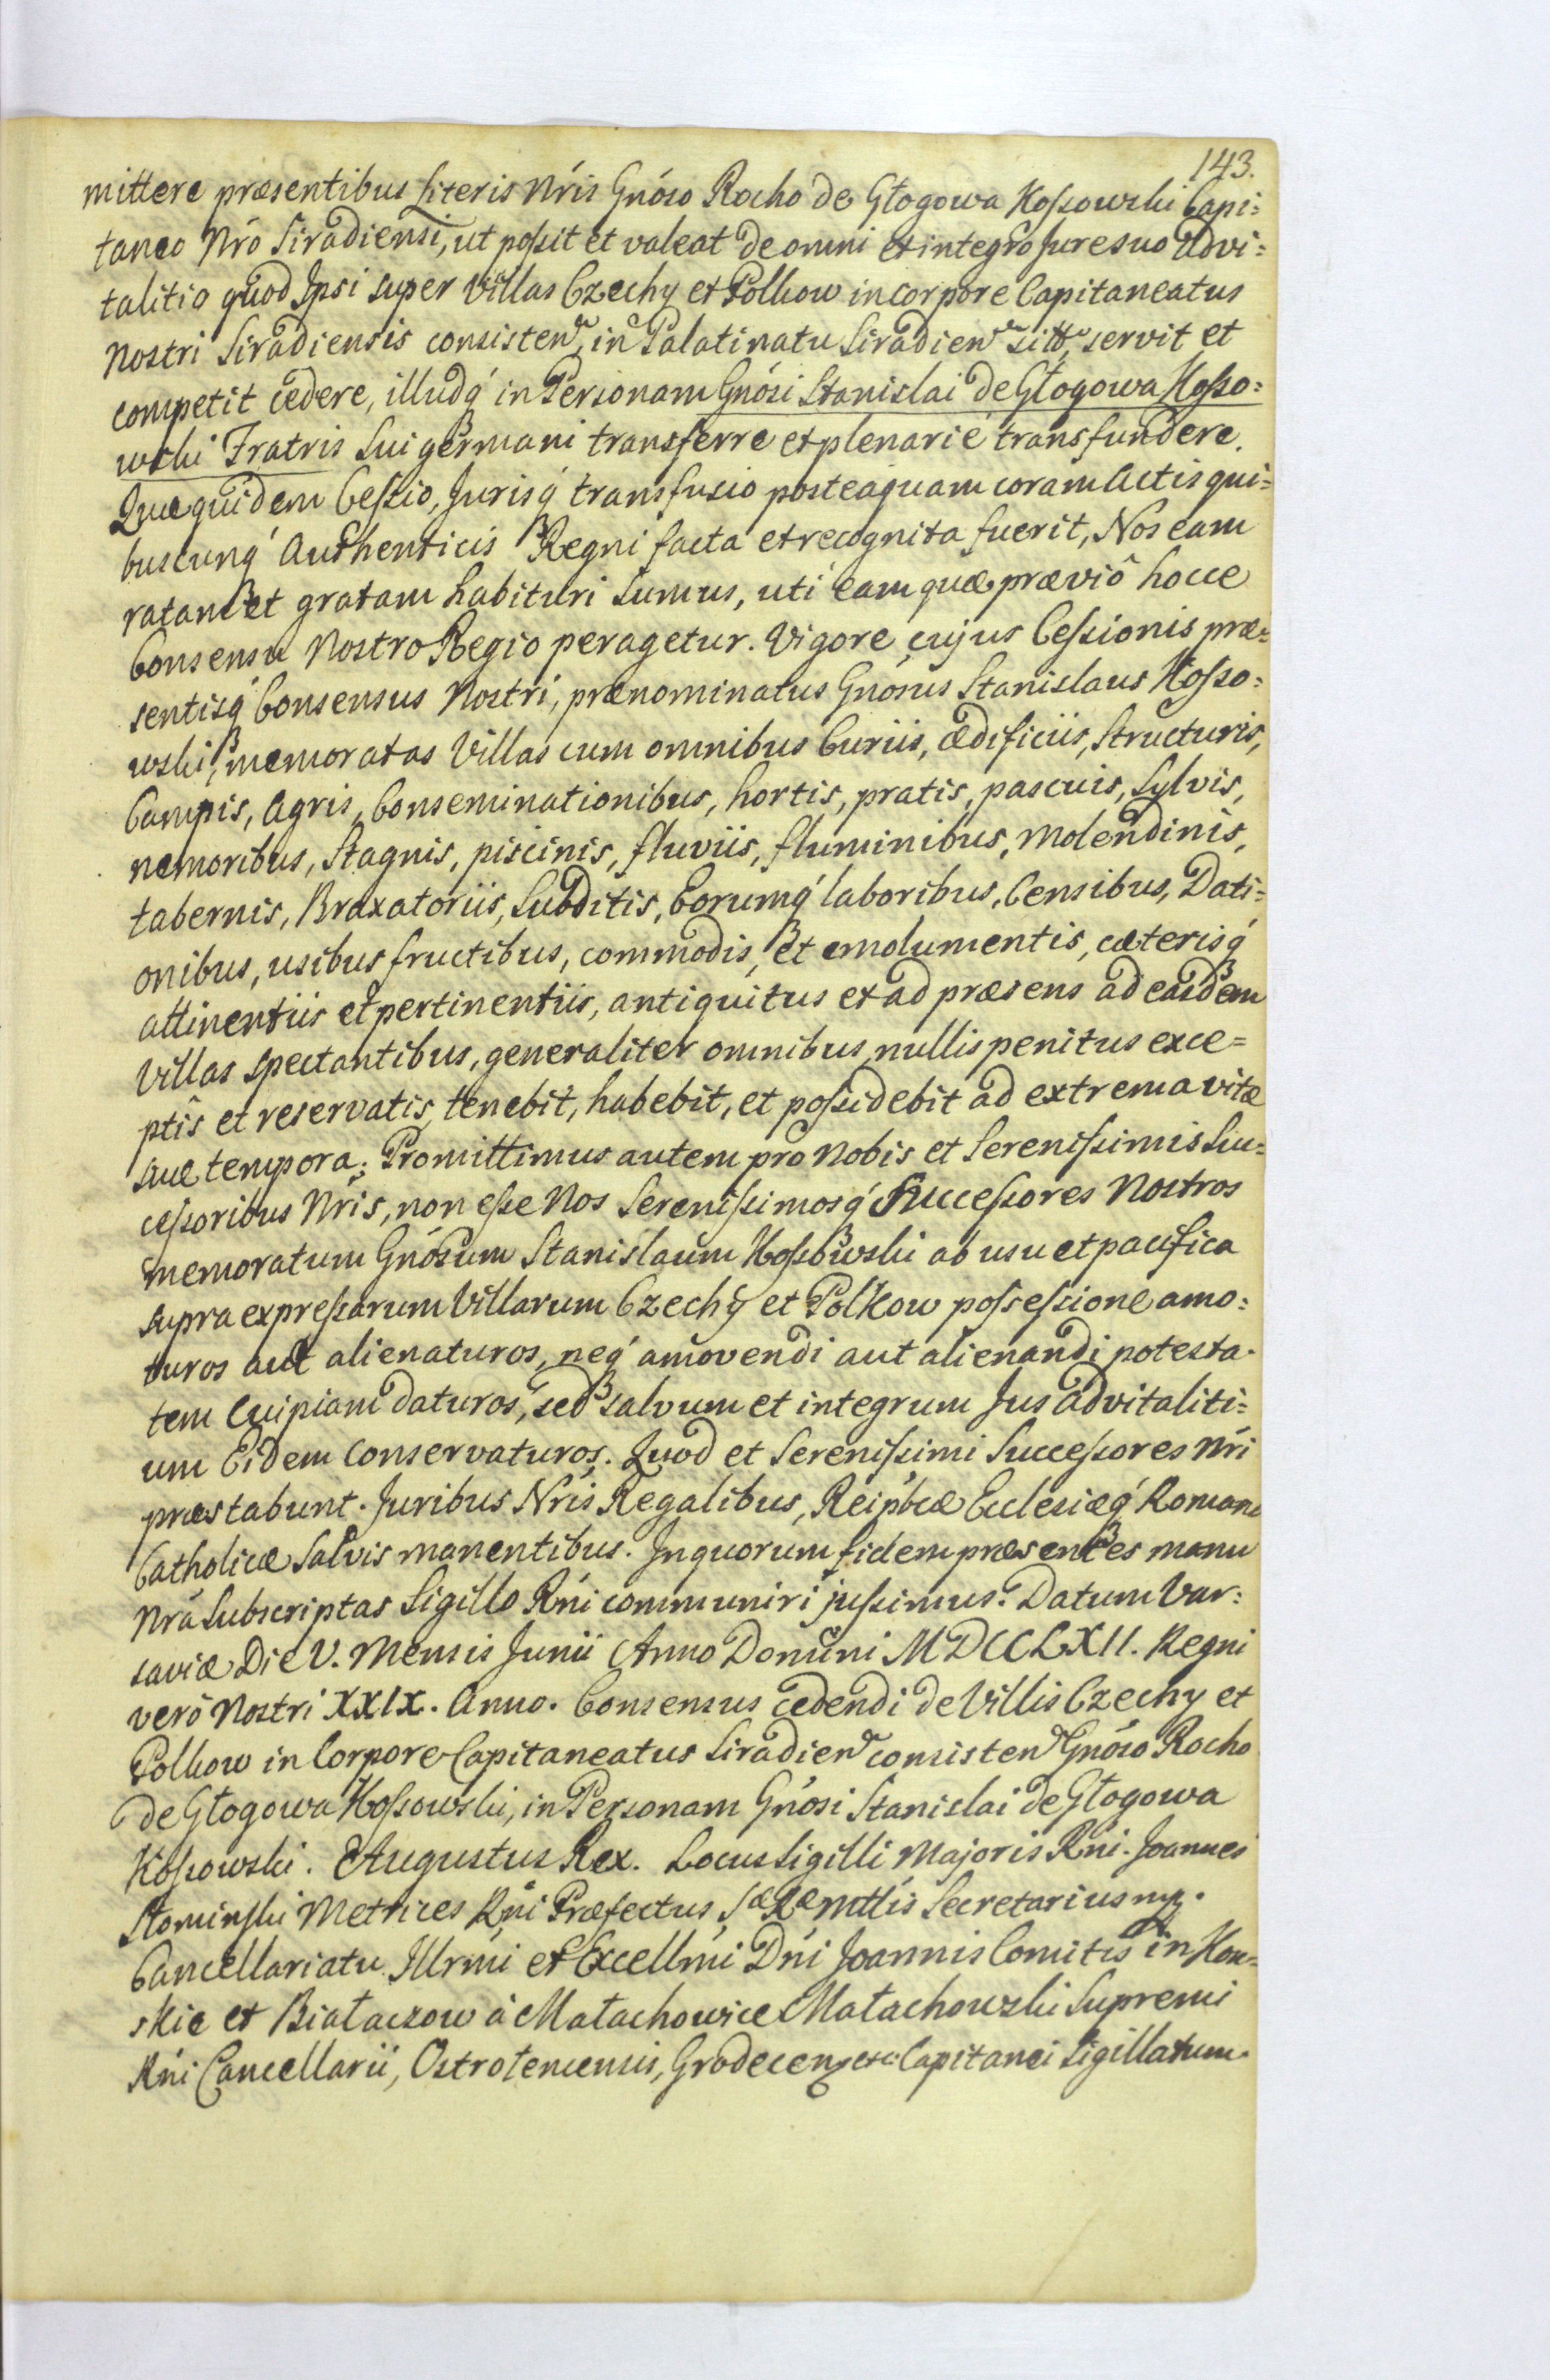 143.
mittere præsentibus Literis Nris Gnoso Rocho de Głogowa Kossowski Capi=
taneo Nro Siradiensi, ut possit et valeat de omni et integro Jure suo advi=
talitio quod Ipsi super Villas Czechy et Polkow in corpore Capitaneatus
Nostri Siradiensis consisten, in Palatinatu Siradien sitt, servit et
competit cedere, illudq́ in Personam Gnosi Stanislai de Głogowa Kosso=
wski Fratris Sui germani transferre et plenarie transfundere.
Quæ quidem Cessio, Jurisq́ transfusio posteaquam coram Actis qui=
buscunq́ Authenticis Regni facta et recognita fuerit, Nos eam
ratam et gratam habituri sumus, uti eam quæ præviô hocce
Consensu Nostro Regio peragetur. Vigore cujus Cessionis præ=
sentisq́ Consensus Nostri, prænominatus Gnosus Stanislaus Kosso=
wski, memoratas Villas cum omnibus Curiis, ædificiis, Structuris,
Campis, Agris, Conseminationibus, hortis, pratis, pascuis, Sylvis,
nemoribus, Stagnis, piscinis, fluviis, fluminibus, Molendinis,
tabernis, Braxatoriis, Subditis, Eorumq́ laboribus, Censibus, Dati=
onibus, usibus fructibus, commodis, et emolumentis, cæterisq́
attinentiis et pertinentiis, antiquitus et ad præsens ad easdem
Villas spectantibus, generaliter omnibus nullis penitus exce=
ptîs et reservatis, tenebit, habebit, et possidebit ad extrema vitæ
suæ tempora; Promittimus autem pro Nobis et Serenissimis Suc=
cessoribus Nris, non esse Nos Serenissimosq́ Successores Nostros
memoratum Gnosum Stanislaum Kossowski ab usu et pacifica
supra expressarum Villarum Czechÿ et Polkow possessione amo=
turos aut alienaturos, neq́ amovendi aut alienandi potesta-
tem Cuipiam daturos, sed salvum et integrum Jus advitaliti=
um Eidem Conservaturos. Quod et Serenissimi Successores Nri
præstabunt. Juribus Nris Regalibus, Reipbcæ Ecclesiæq́ Romanæ
Catholicæ Salvis manentibus. In quorum fidem præsentes manu
Nra Subscriptas Sigillo Rni communiri jussimus. Datum Var=
saviæ Die V. Mensis Junii Anno Domini MDCCLXII. Regni
verò Nostri XXIX. Anno. Consensus cedendi de Villis Czechy et
Polkow in Corpore Capitaneatus Siradien consisten Gnoso Rocho
de Głogowa Kossowski, in Personam Gnosi Stanislai de Głogowa
Kossowski. Augustus Rex. Locus Sigilli Majoris Rni. Joannes
Słominski Metrices Rni Præfectus, Sæ Ræ Mttis Secretarius mp.
Cancellariatu Illrmi et Excellmi Dni Joannis Comitis in Kon=
skie et Białaczow à Małachowice Małachowski Supremi
Rni Cancellarii, Ostrolencensis, Grodecen etc Capitanei Sigillatum.